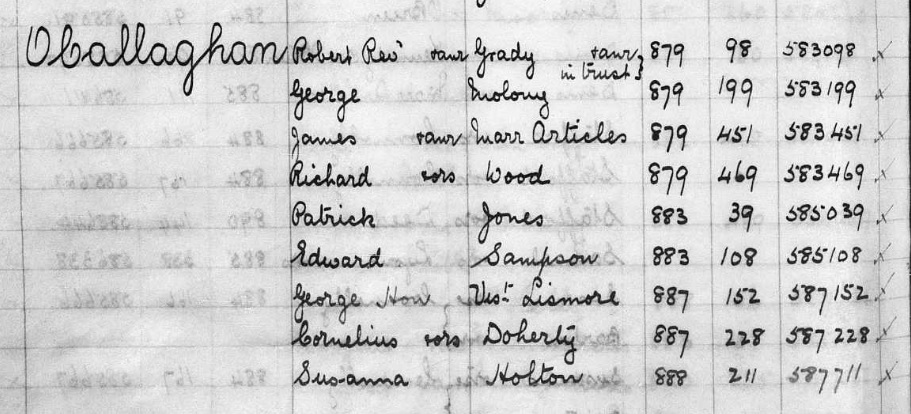 Ocallaghan Robert Revd & anr Grady & anr in trust } 879 98 583098 x
George Molony 879 199 583199 x
James & anr Marr Articles 879 451 583451 x
Richard & ors Wood 879 469 583469 x
Patrick Jones 883 39 585039 x
Edward Sampson 883 108 585108 x
George Hon Vist Lismore 887 152 587152 x
Cornelius & ors Doherty 887 228 587228 x
Susanna Holton 888 211 587711 x